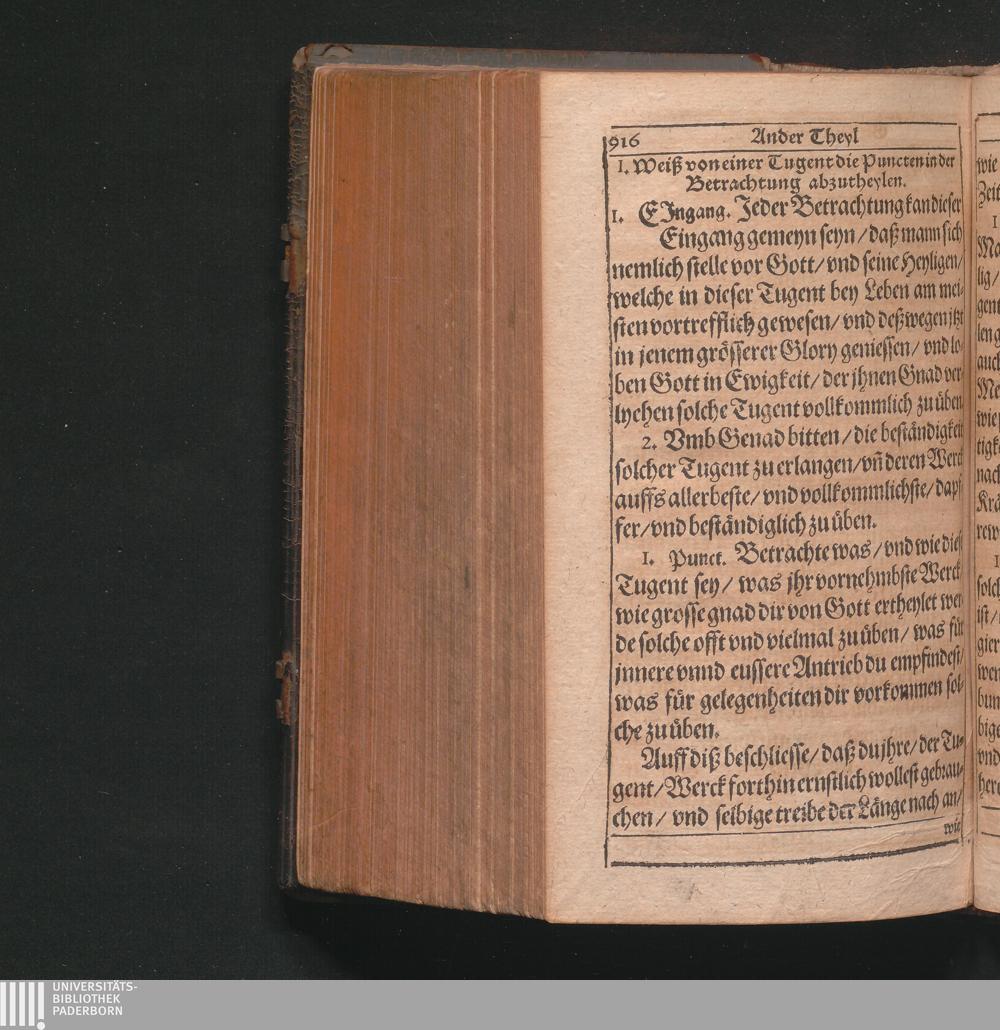 916 Ander Theyl
1. Weiß von einer Tugent die Puncten in der
Betrachtung abzutheylen.
1. EJngang. Jeder Betrachtung kan dieser
Eingang gemeyn seyn / daß mann sich
nemlich stelle vor Gott / vnd seine Heyligen /
welche in dieser Tugent bey Leben am mei-
sten vortrefflich gewesen / vnd deßwegen jtzt
in jenem grösserer Glory geniessen / vnd lo-
ben Gott in Ewigkeit / der jhnen Gnad ver-
lyehen solche Tugent vollkommlich zu üben
2. Vmb Genad bitten / die beständigkeit
solcher Tugent zu erlangen / vñ deren Werck
auffs allerbeste / vnd vollkommlichste / dapf-
fer / vnd beständiglich zu üben.
1. Punct. Betrachte was / vnd wie diese
Tugent sey / was jhr vornehmbste Werck
wie grosse gnad dir von Gott ertheylet wer-
de solche offt vnd vielmal zu üben / was für
jnnere vnnd eussere Antrieb du empfindest /
was für gelegenheiten dir vorkommen sol-
che zu üben.
Auff diß beschliesse / daß du jhre / der Tu-
gent / Werck forthin ernstlich wollest gebrau-
chen / vnd selbige treibe der Länge nach an /
wie
wie
Zeit
UNIVERSITÄTS-
BIBLIOTHEK
PADERBORN